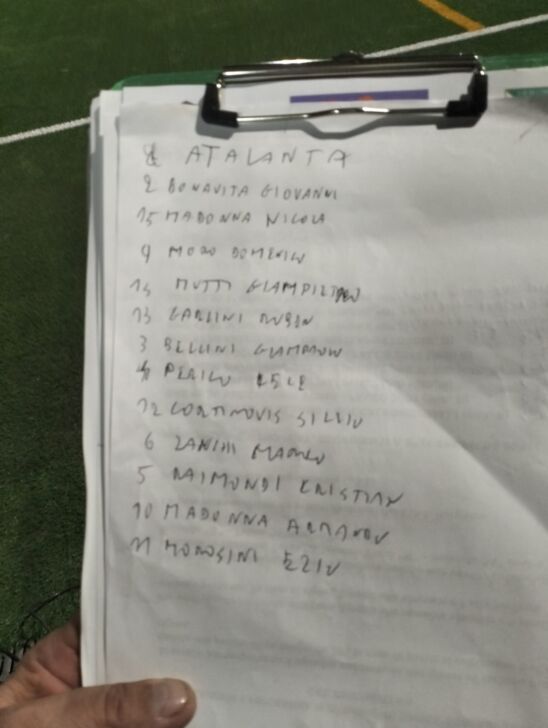 ATALANTA
2 BONAVITA GIOVANNI
15 MADONNA NICOLA
9 MORO DOMENICO
14 MUTTI
13 GARLINI RUBEN
3 BELLINI GIANPAOLO
PERICO LELE
12 CORTINOVIS SILVIO
6 ZANINI MARCO
5 RAIMONDI CRISTIAN
10 MADONNA ARMANDO
11 MOROSINI EZIO